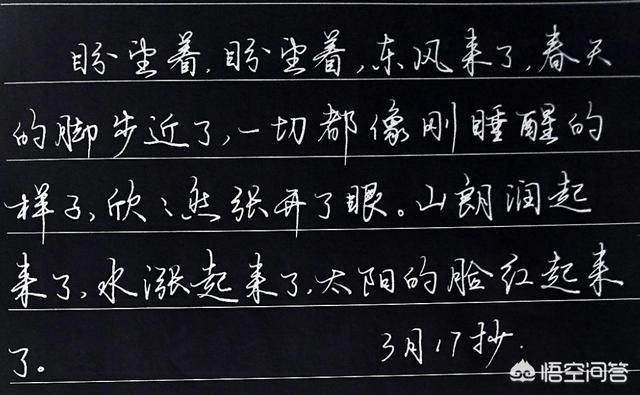 盼望着,盼望着,东风来了,春天
的脚步近了,一切都像刚睡醒的
样子,欣欣然张开了眼。山朗润起
来了,水涨起来了,太阳的脸红起来
了。
3月17抄.
悟空问答